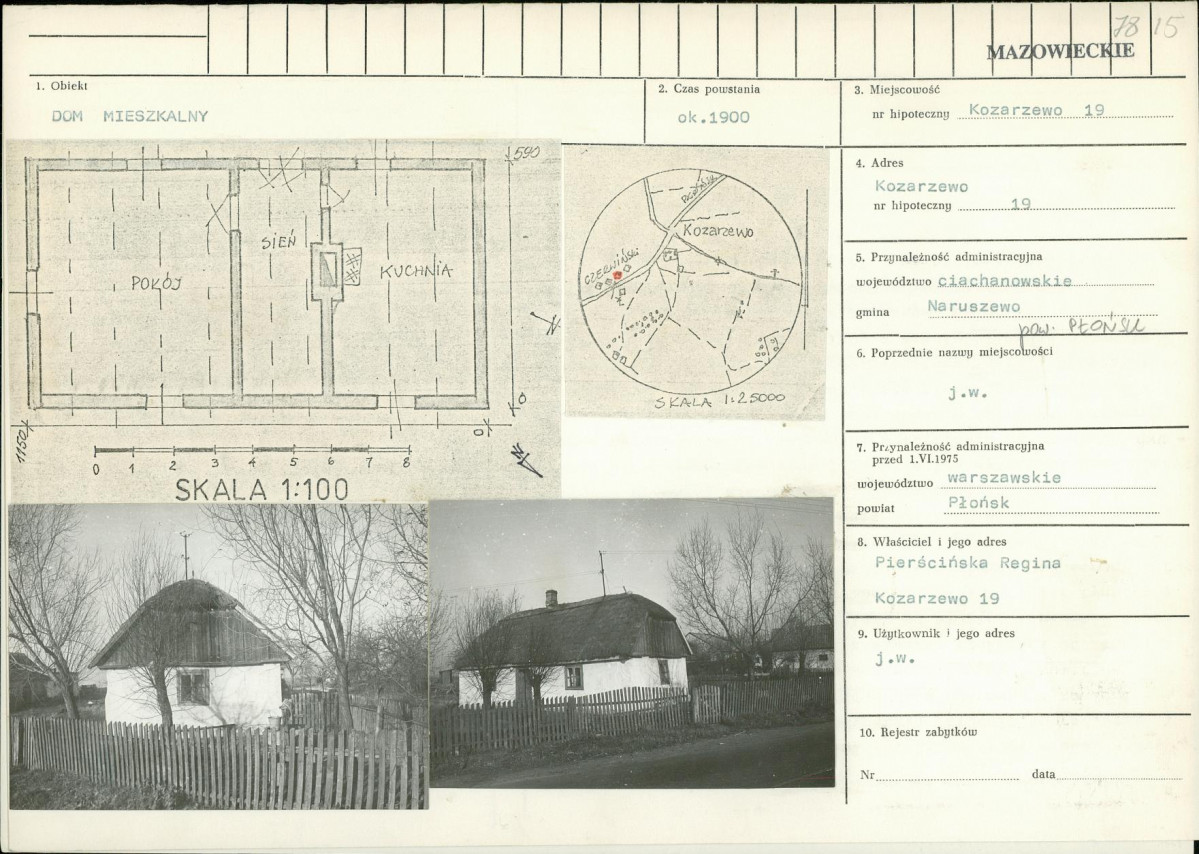 78 15
MAZOWIECKIE
1. Obiekt
DOM MIESZKALNY
2. Czas powstania
ok.1900
3. Miejscowość
nr hipoteczny Kozarzewo 19
590
SIEŃ
POKÓJ
KUCHNIA
N
0
1150
0
0 1 2 3 4 5 6 7 8
N
SKALA 1:100
PŁOŃSK
Kozarzewo
CZERWIŃSK
SKALA 1:25000
4. Adres
Kozarzewo
nr hipoteczny 19
5. Przynależność administracyjna
województwo ciachanowskie
gmina Naruszewo
pow. PŁOŃSK
6. Poprzednie nazwy miejscowości
j.w.
7. Przynależność administracyjna
przed 1.VI.1975
województwo warszawskie
powiat Płońsk
8. Właściciel i jego adres
Pierścińska Regina
Kozarzewo 19
9. Użytkownik i jego adres
j.w.
10. Rejestr zabytków
Nr data